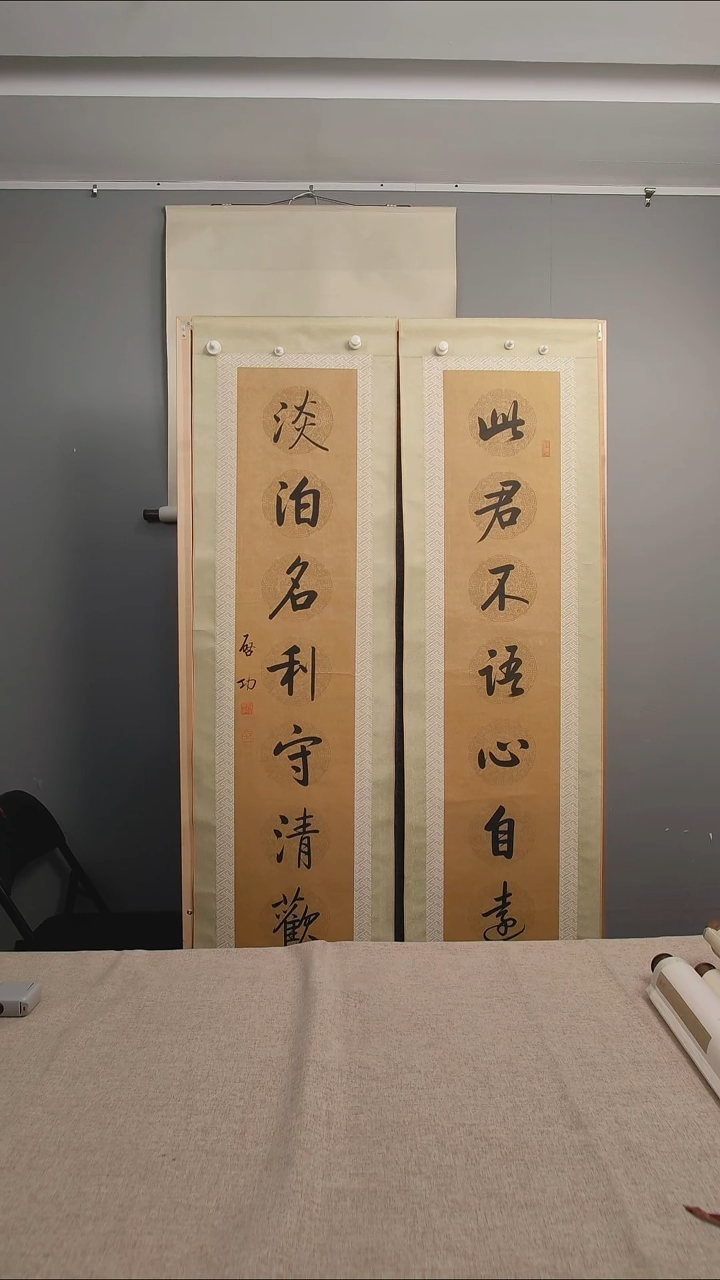 此君不语心自遠
淡泊名利守清歡
啓功